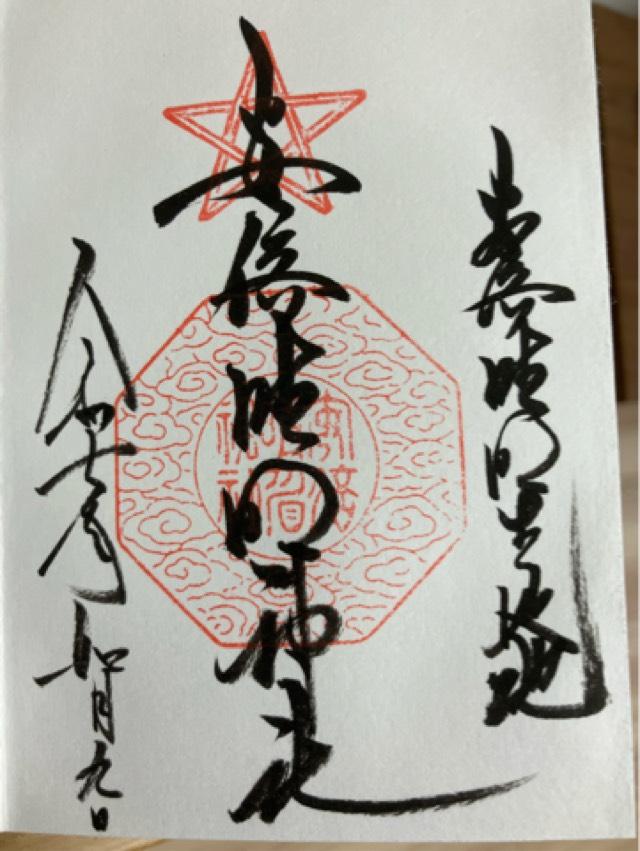 安倍晴明生誕地
安倍晴明神社
令和七年 如月九日